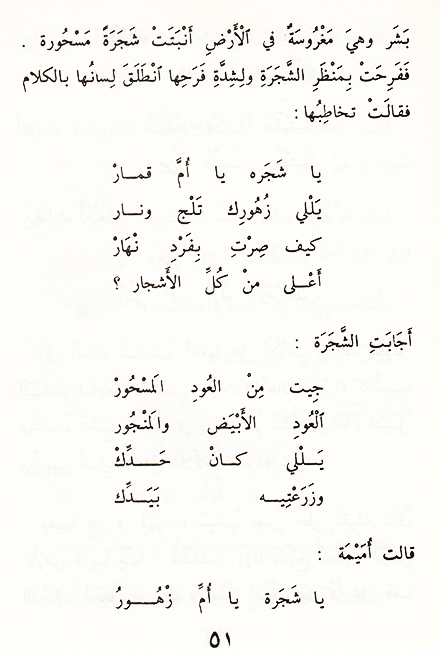 بَشَر وهيَ مَغْرُوسَةٌ في الْأَرْضِ أَنْبَتَتْ شَجَرَةً مَسْحُورة .
فَفَرِحَتْ بِمَنْظَرِ الشَّجَرَةِ ولِشِدَّةِ فَرَحِها انْطَلَقَ لِسانُها بالكلام
فقالَتْ تخاطِبُها :
يا شَجَره يا أُمَّ قمـارْ
يَلْلي زُهُورِك تَلْج ونـار
كيف صِرْتِ بِفَرْدِ نْهَارْ
أَعْـلى مِنْ كُلِّ الأَشجار ؟
أَجَابَتِ الشَّجَرَة :
جِيت مِنْ العُودِ المَسْحُورْ
الْعُودِ الأَبْيَض والمَنْجُور
يَـلْلي كـانْ حَـدِّكْ
وزَرَعْتِيـه بَيَـدِّك
قالت أُمَيْمَة :
يا شَجَرة يا أُمِّ زْهُـورُ
٥١